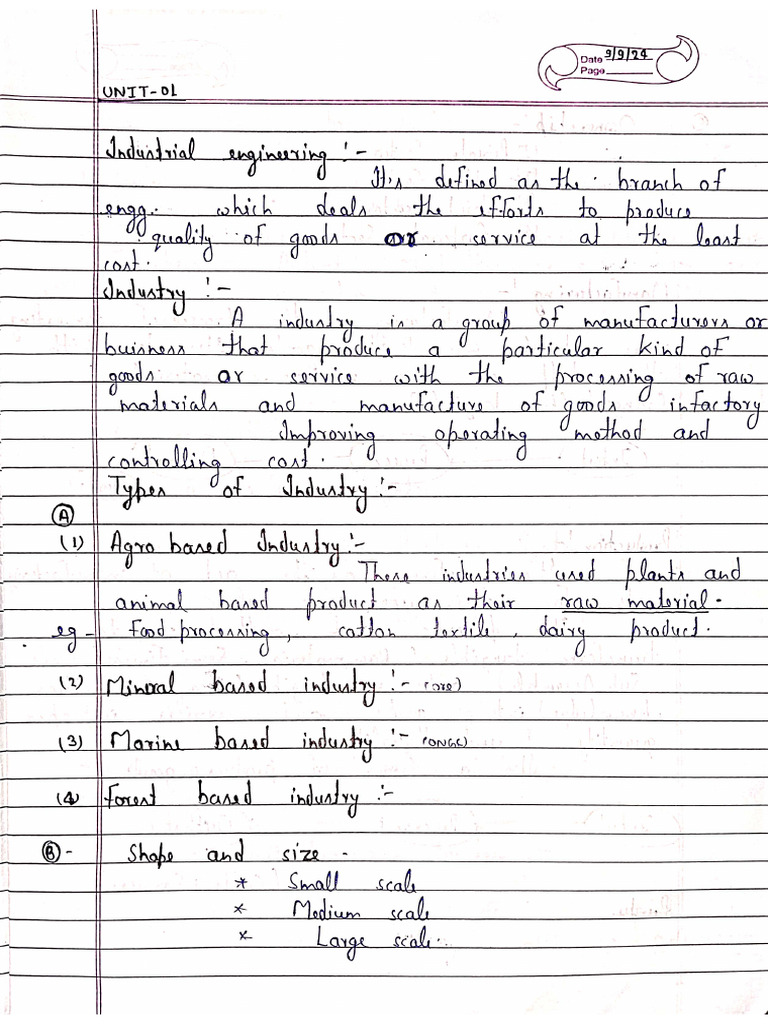 Date 9/9/24
Page
UNIT-01
Industrial engineering :-
It's defined as the branch of
engg. which deals the efforts to produce
quality of goods or service at the least
cost.
Industry :-
A industry is a group of manufacturers or
buisness that produce a particular kind of
goods or service with the processing of raw
materials and manufacture of goods infactory
Improving operating method and
controlling cost.
Types of Industry :-
(A)
(1) Agro based Industry :-
These industries used plants and
animal based product as their raw material.
eg - Food processing, cotton textile, dairy product.
(2) Mineral based industry :- (ore)
(3) Marine based industry :- (ONGC)
(4) Forest based industry :-
(B) - Shape and size -
* Small scale
* Medium scale
* Large scale.